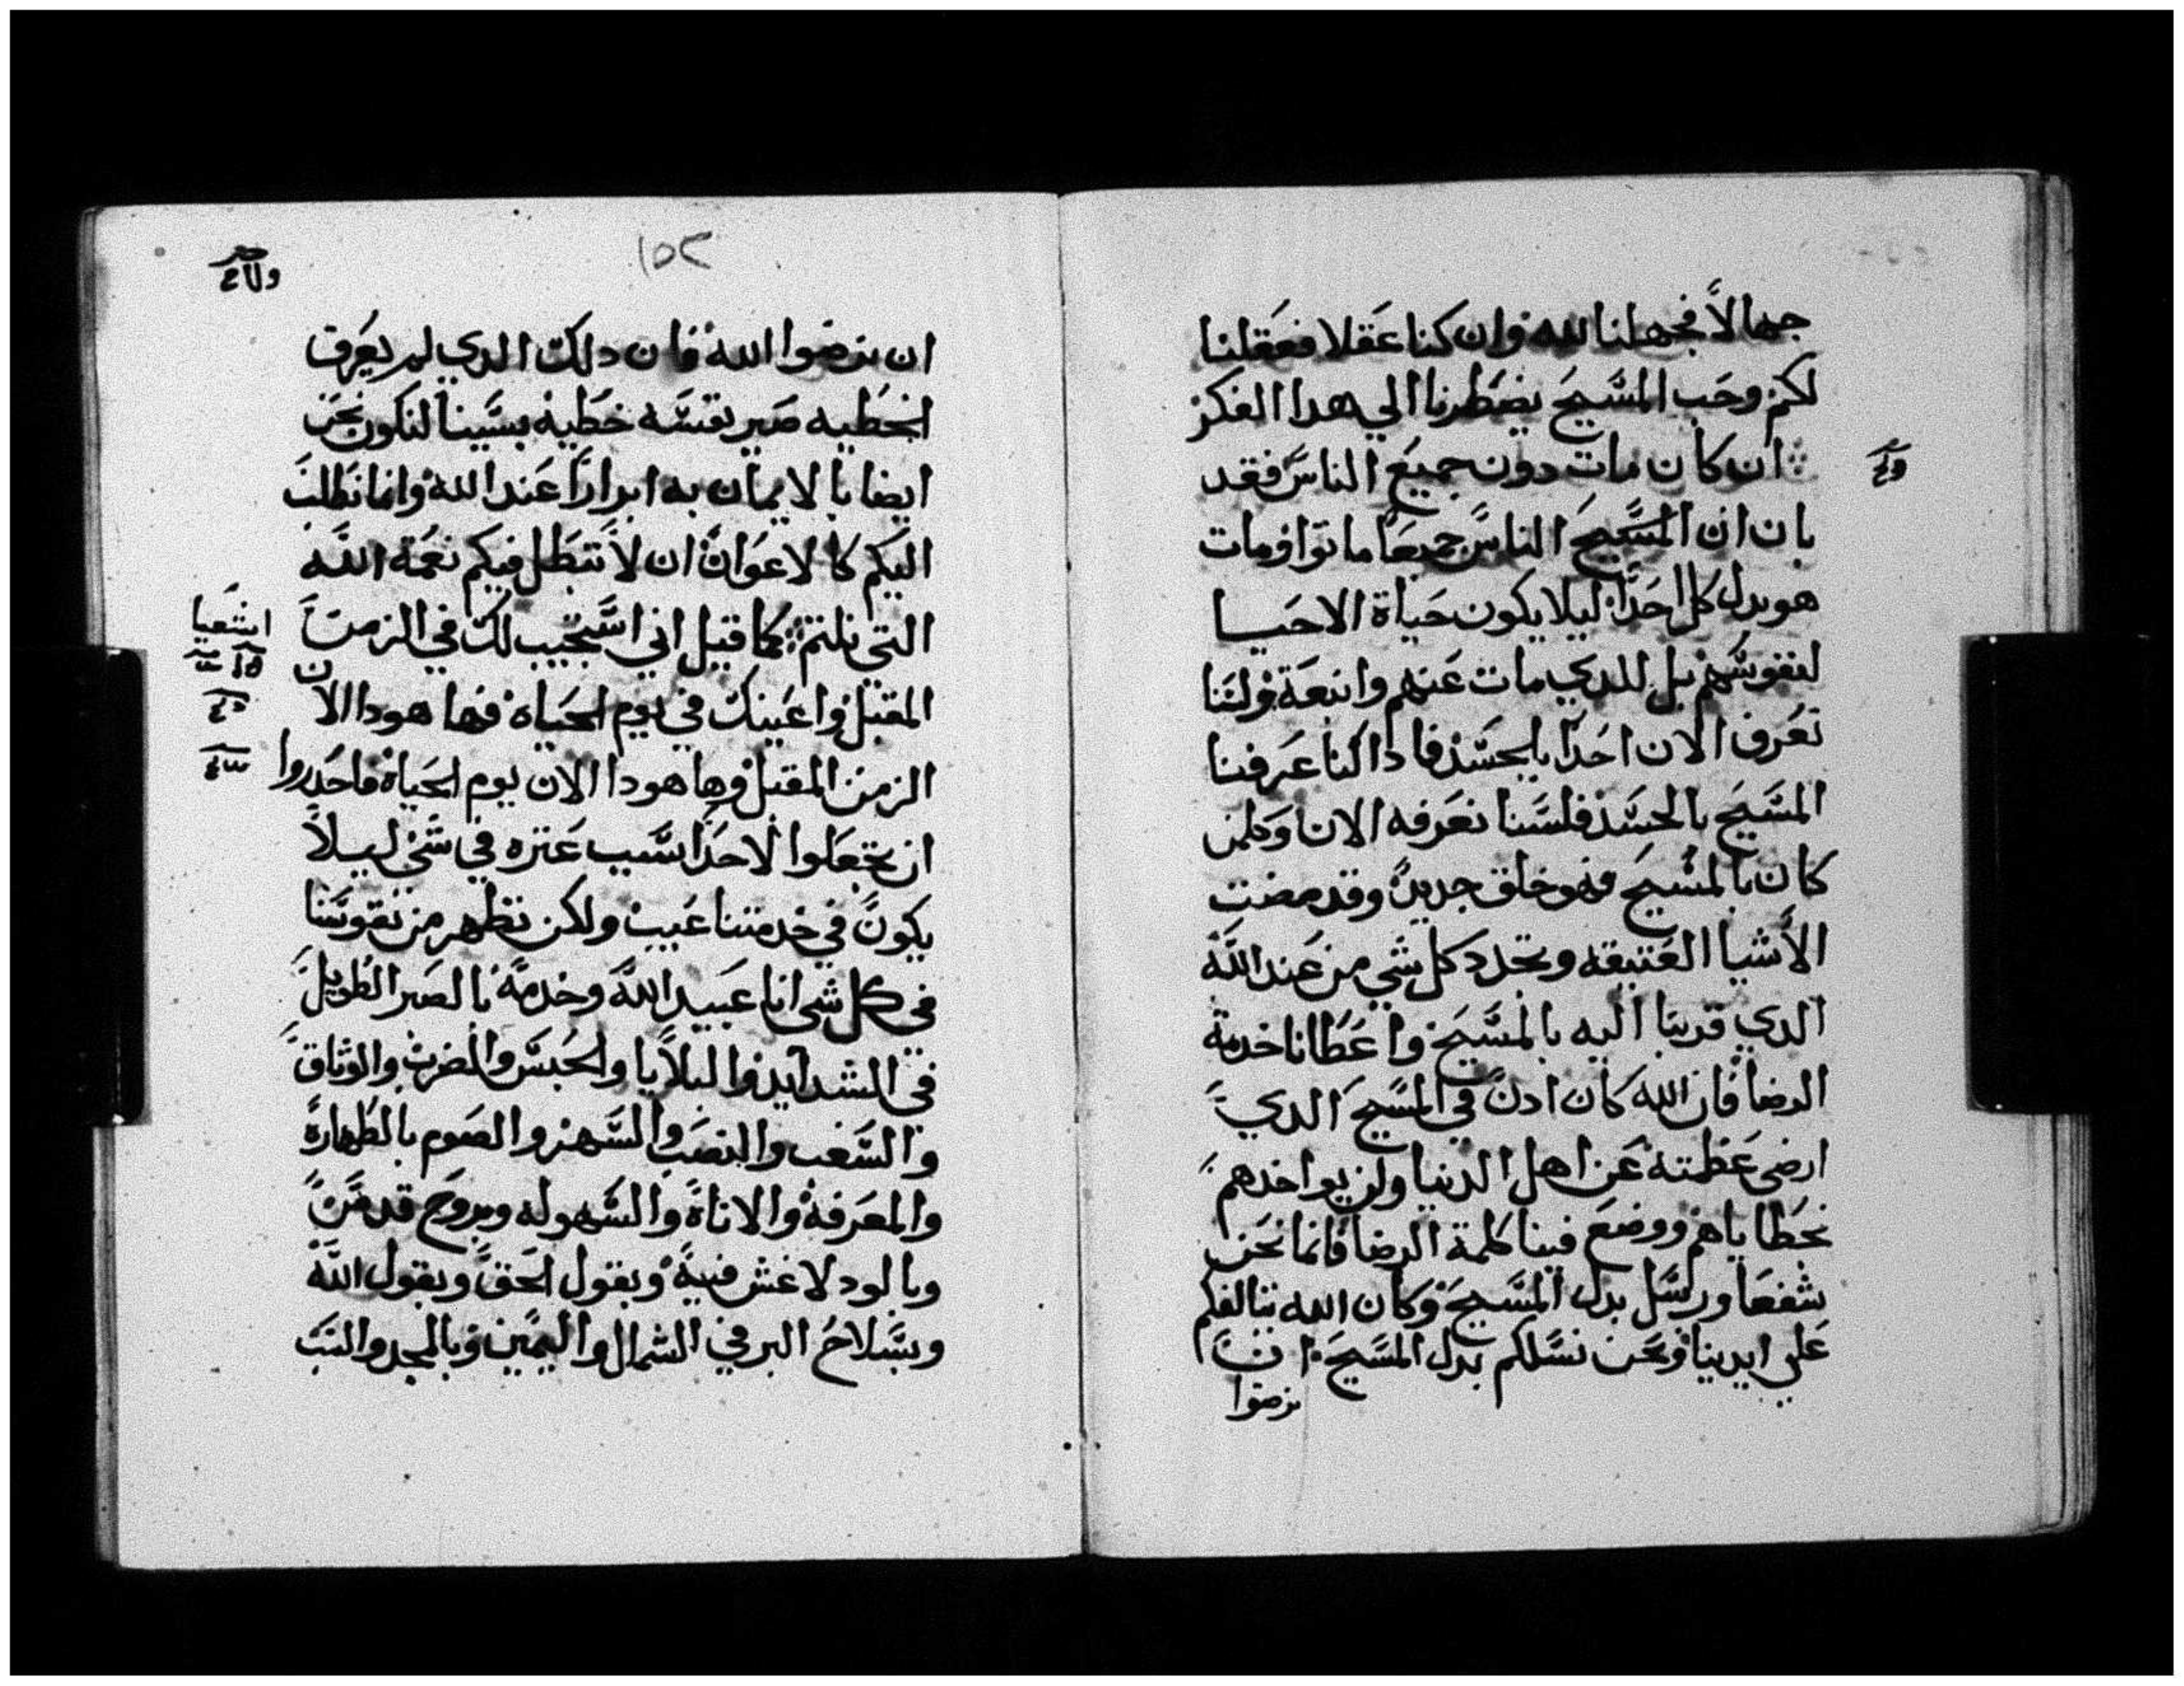 جهالاً فجهلنا لله وان كنا عقلا فعقلنا
لكم وحب المسيح يضطرنا الي هدا الفكر
ان كان مات دون جميع الناس فقد
بان ان المسيح الناس جميعاً ماتوا ومات
هو بدل كل احداً ليلا يكون حياة الاحيا
لنفوسهم بل للدي مات عنهم وانبعة ولسنا
نعرف الان احداً بالجسد فاداكنا عرفنا
المسيح بالجسد فلسنا نعرفه الان وكلمن
كان بالمسيح فهو خلق جديد وقد مضت
الأشيا العتيقه وتجدد كل شي من عند الله
الدي قربنا اليه بالمسيح واعطانا خدمة
الرضا فان الله كان ادن في المسيح الدي
ارضي عظمته عن اهل الدنيا ولم يواخدهم
بخطاياهم ووضع فينا كلمة الرضا فانما نحن
شفعا ورسل بدل المسيح وكان الله يتالفكم
علي ايدينا ونحن نسلكم بدل المسيح ان
ترضوا
١٥٢
ان ترضوا الله فان دلك الدي لم يعرف
الخطيه صير نفسه خطية بسببنا لنكون نحن
ايضا بالايمان به ابراراً عند الله وانما نطلب
اليكم كالاعوان ان لا تبطل فيكم نعمة الله
التي نلتم كما قيل اني استجيب لك في الزمن
اشعيا
المقبل واعينك في يوم الحياه فها هودا الان
الزمن المقبل وها هودا الان يوم الحياة فاحدروا
ان تجعلوا لاحداً سبب عتره في شي ليلاً
يكون في خدمتنا عيب ولكن نظهر من نفوسنا
في كل شي انا عبيد الله وخدمة بالصبر الطويل
في الشدايد والبلايا والحبس والضرب والوثاق
والشغب والنصب والسهر والصوم بالطهارة
والمعرفة والاناة والسهوله وبروح قدس
وبالود لا غش فيه وبقول الحق وبقول الله
وبسلاح البر في الشمال واليمين وبالمجد والسب